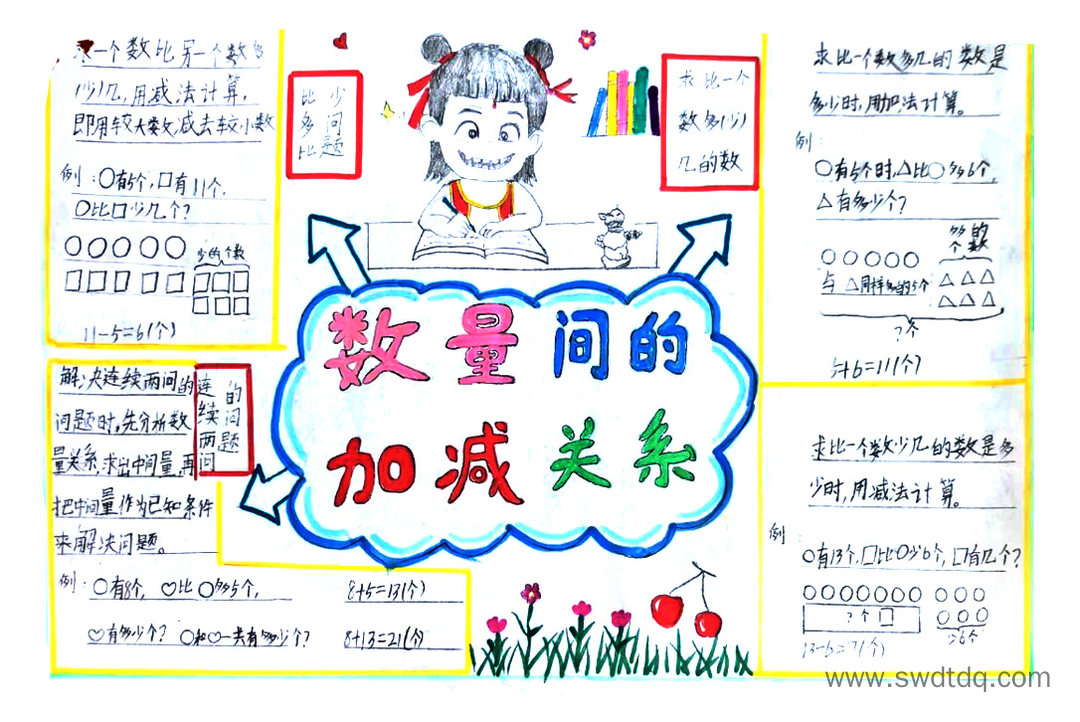 求一个数比另一个数多
(少)几,用减法计算,
即用较大数减去较小数
例:○有5个,□有11个,
○比□少几个?
少的个数
11-5=6(个)
比多比
少问题
求比一个
数多(少)
几的数
求比一个数多几的数是
多少时,用加法计算。
例:
○有5个时,△比○多6个,
△有多少个?
多的
个数
与△同样多的5个
?个
5+6=11(个)
数量间的
加减关系
解决连续两问的
问题时,先分析数
量关系,求出中间量,再
把中间量作为已知条件
来解决问题。
连续两问
的问题
例:○有8个,♡比○多5个,
♡有多少个?○和♡一共有多少个?
8+5=13(个)
8+13=21(个)
求比一个数少几的数是多
少时,用减法计算。
例:
○有13个,□比○少6个,□有几个?
?个□
少6个
13-6=7(个)
www.swdtdq.com